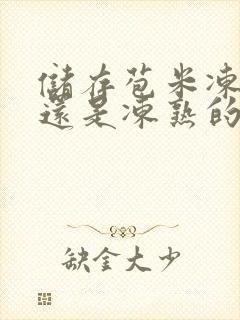 儲存苞米凍
還是凍熟的
缺金大少